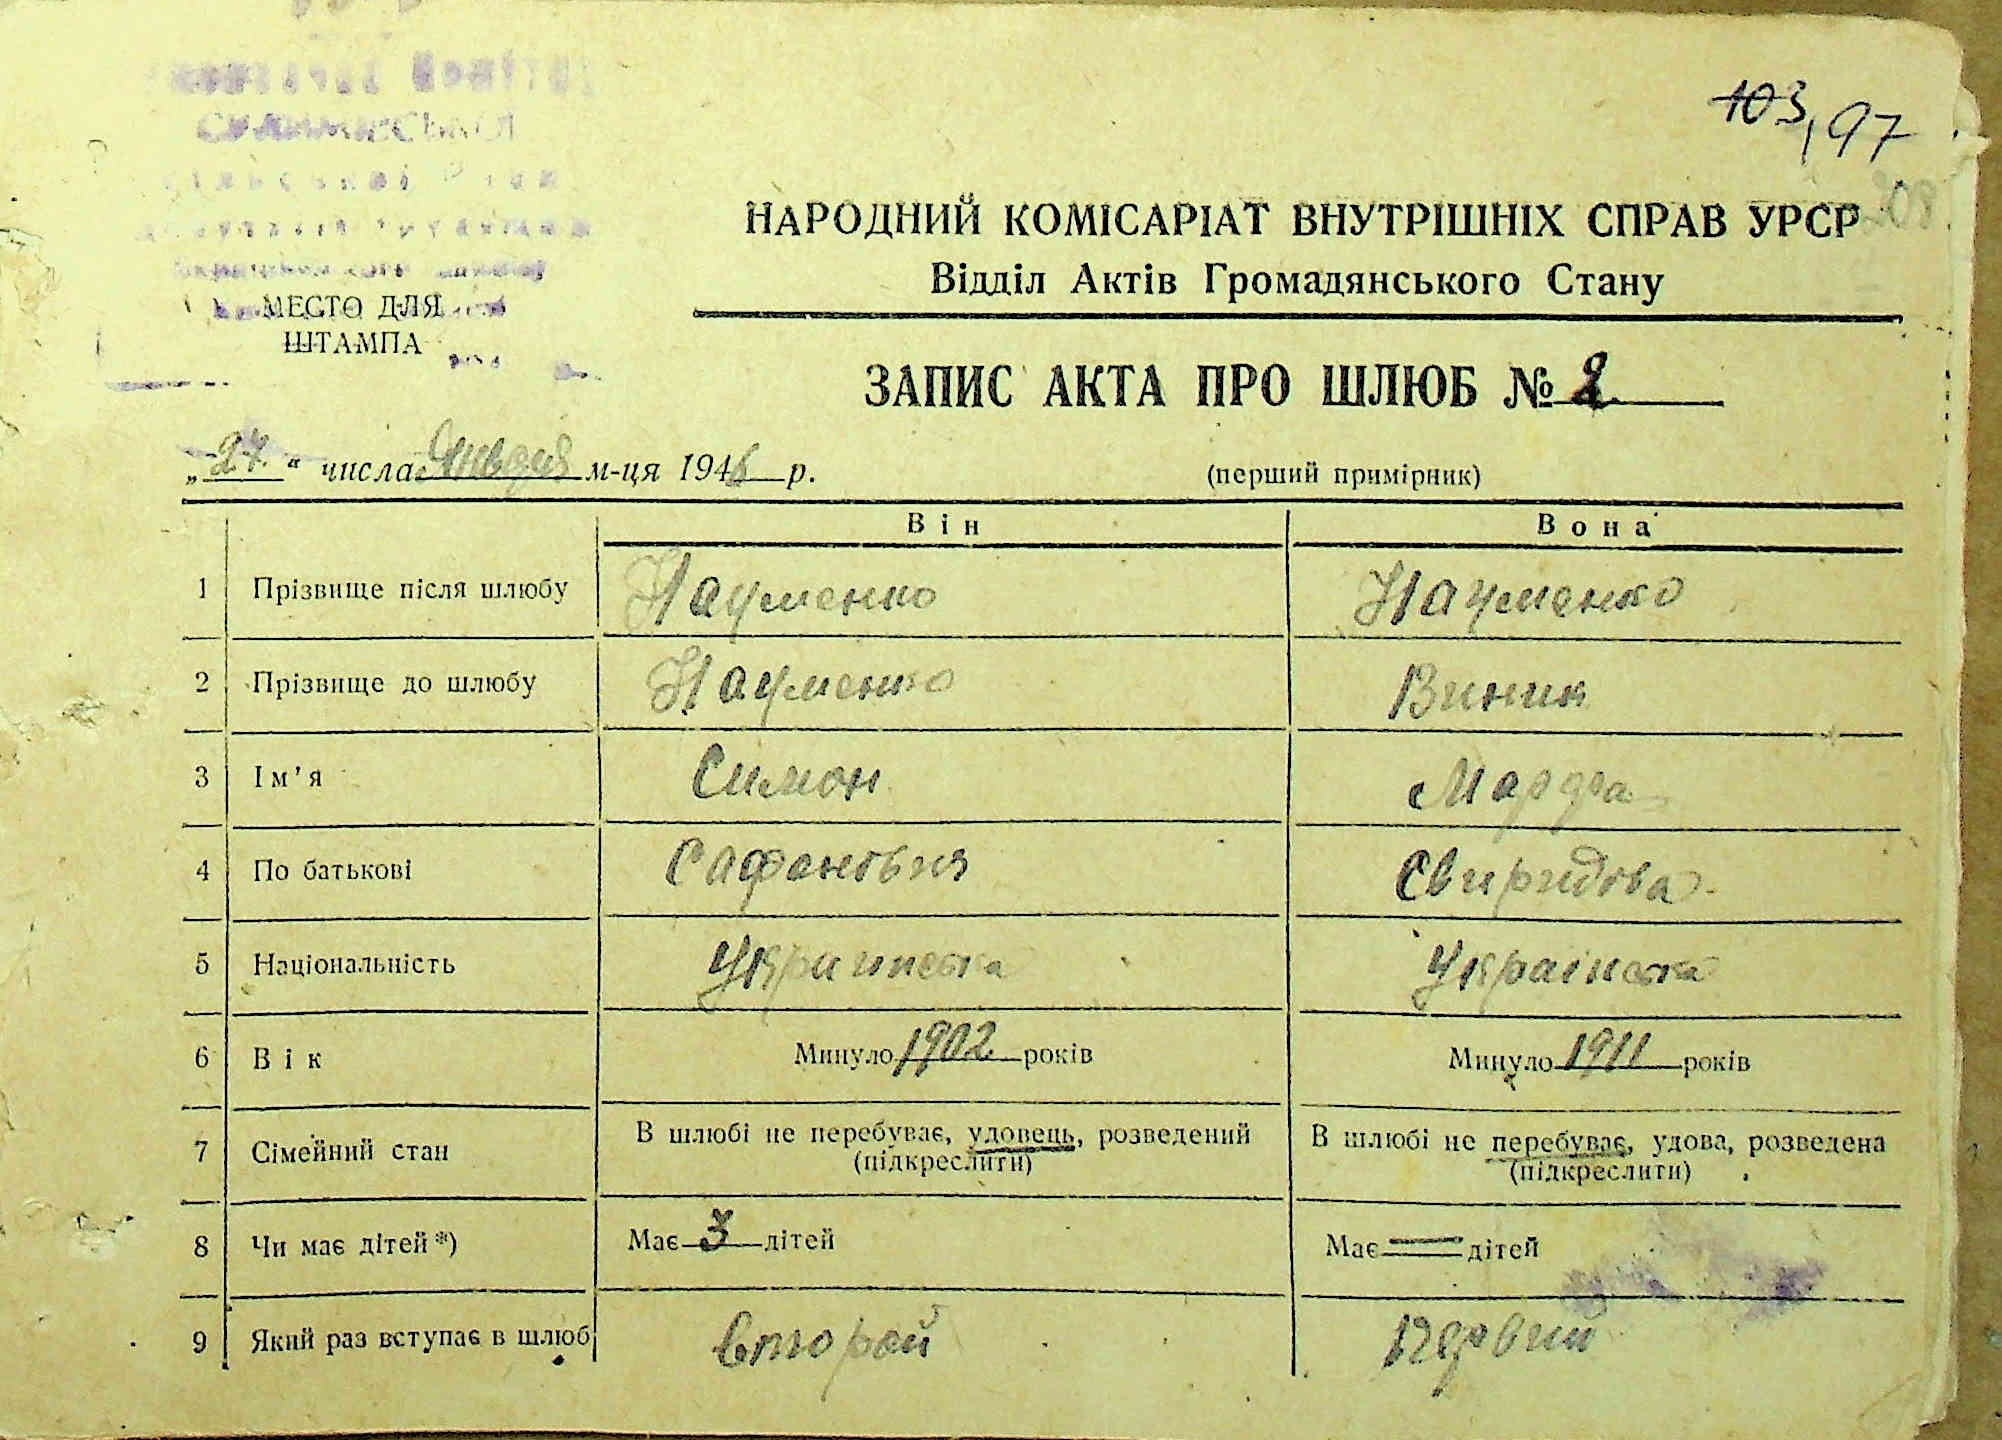 103, 97
208
НАРОДНИЙ КОМІСАРІАТ ВНУТРІШНІХ СПРАВ УРСР
Відділ Актів Громадянського Стану
МЕСТО ДЛЯ
ШТАМПА
ЗАПИС АКТА ПРО ШЛЮБ № 2
„27.“ числа Января м-ця 1946 р.
(перший примірник)
Він Вона
1 Прізвище після шлюбу Науменко Науменко
2 Прізвище до шлюбу Науменко Виник
3 Ім'я Симон Марфа
4 По батькові Сафонович Свиридова
5 Національність Украинська Українська
6 Вік Минуло 1902 років Минуло 1911 років
7 Сімейний стан В шлюбі не перебуває, удовець, розведений В шлюбі не перебуває, удова, розведена
(підкреслити) (підкреслити)
8 Чи має дітей*) Має 3 дітей Має — дітей
9 Який раз вступає в шлюб второй Первий